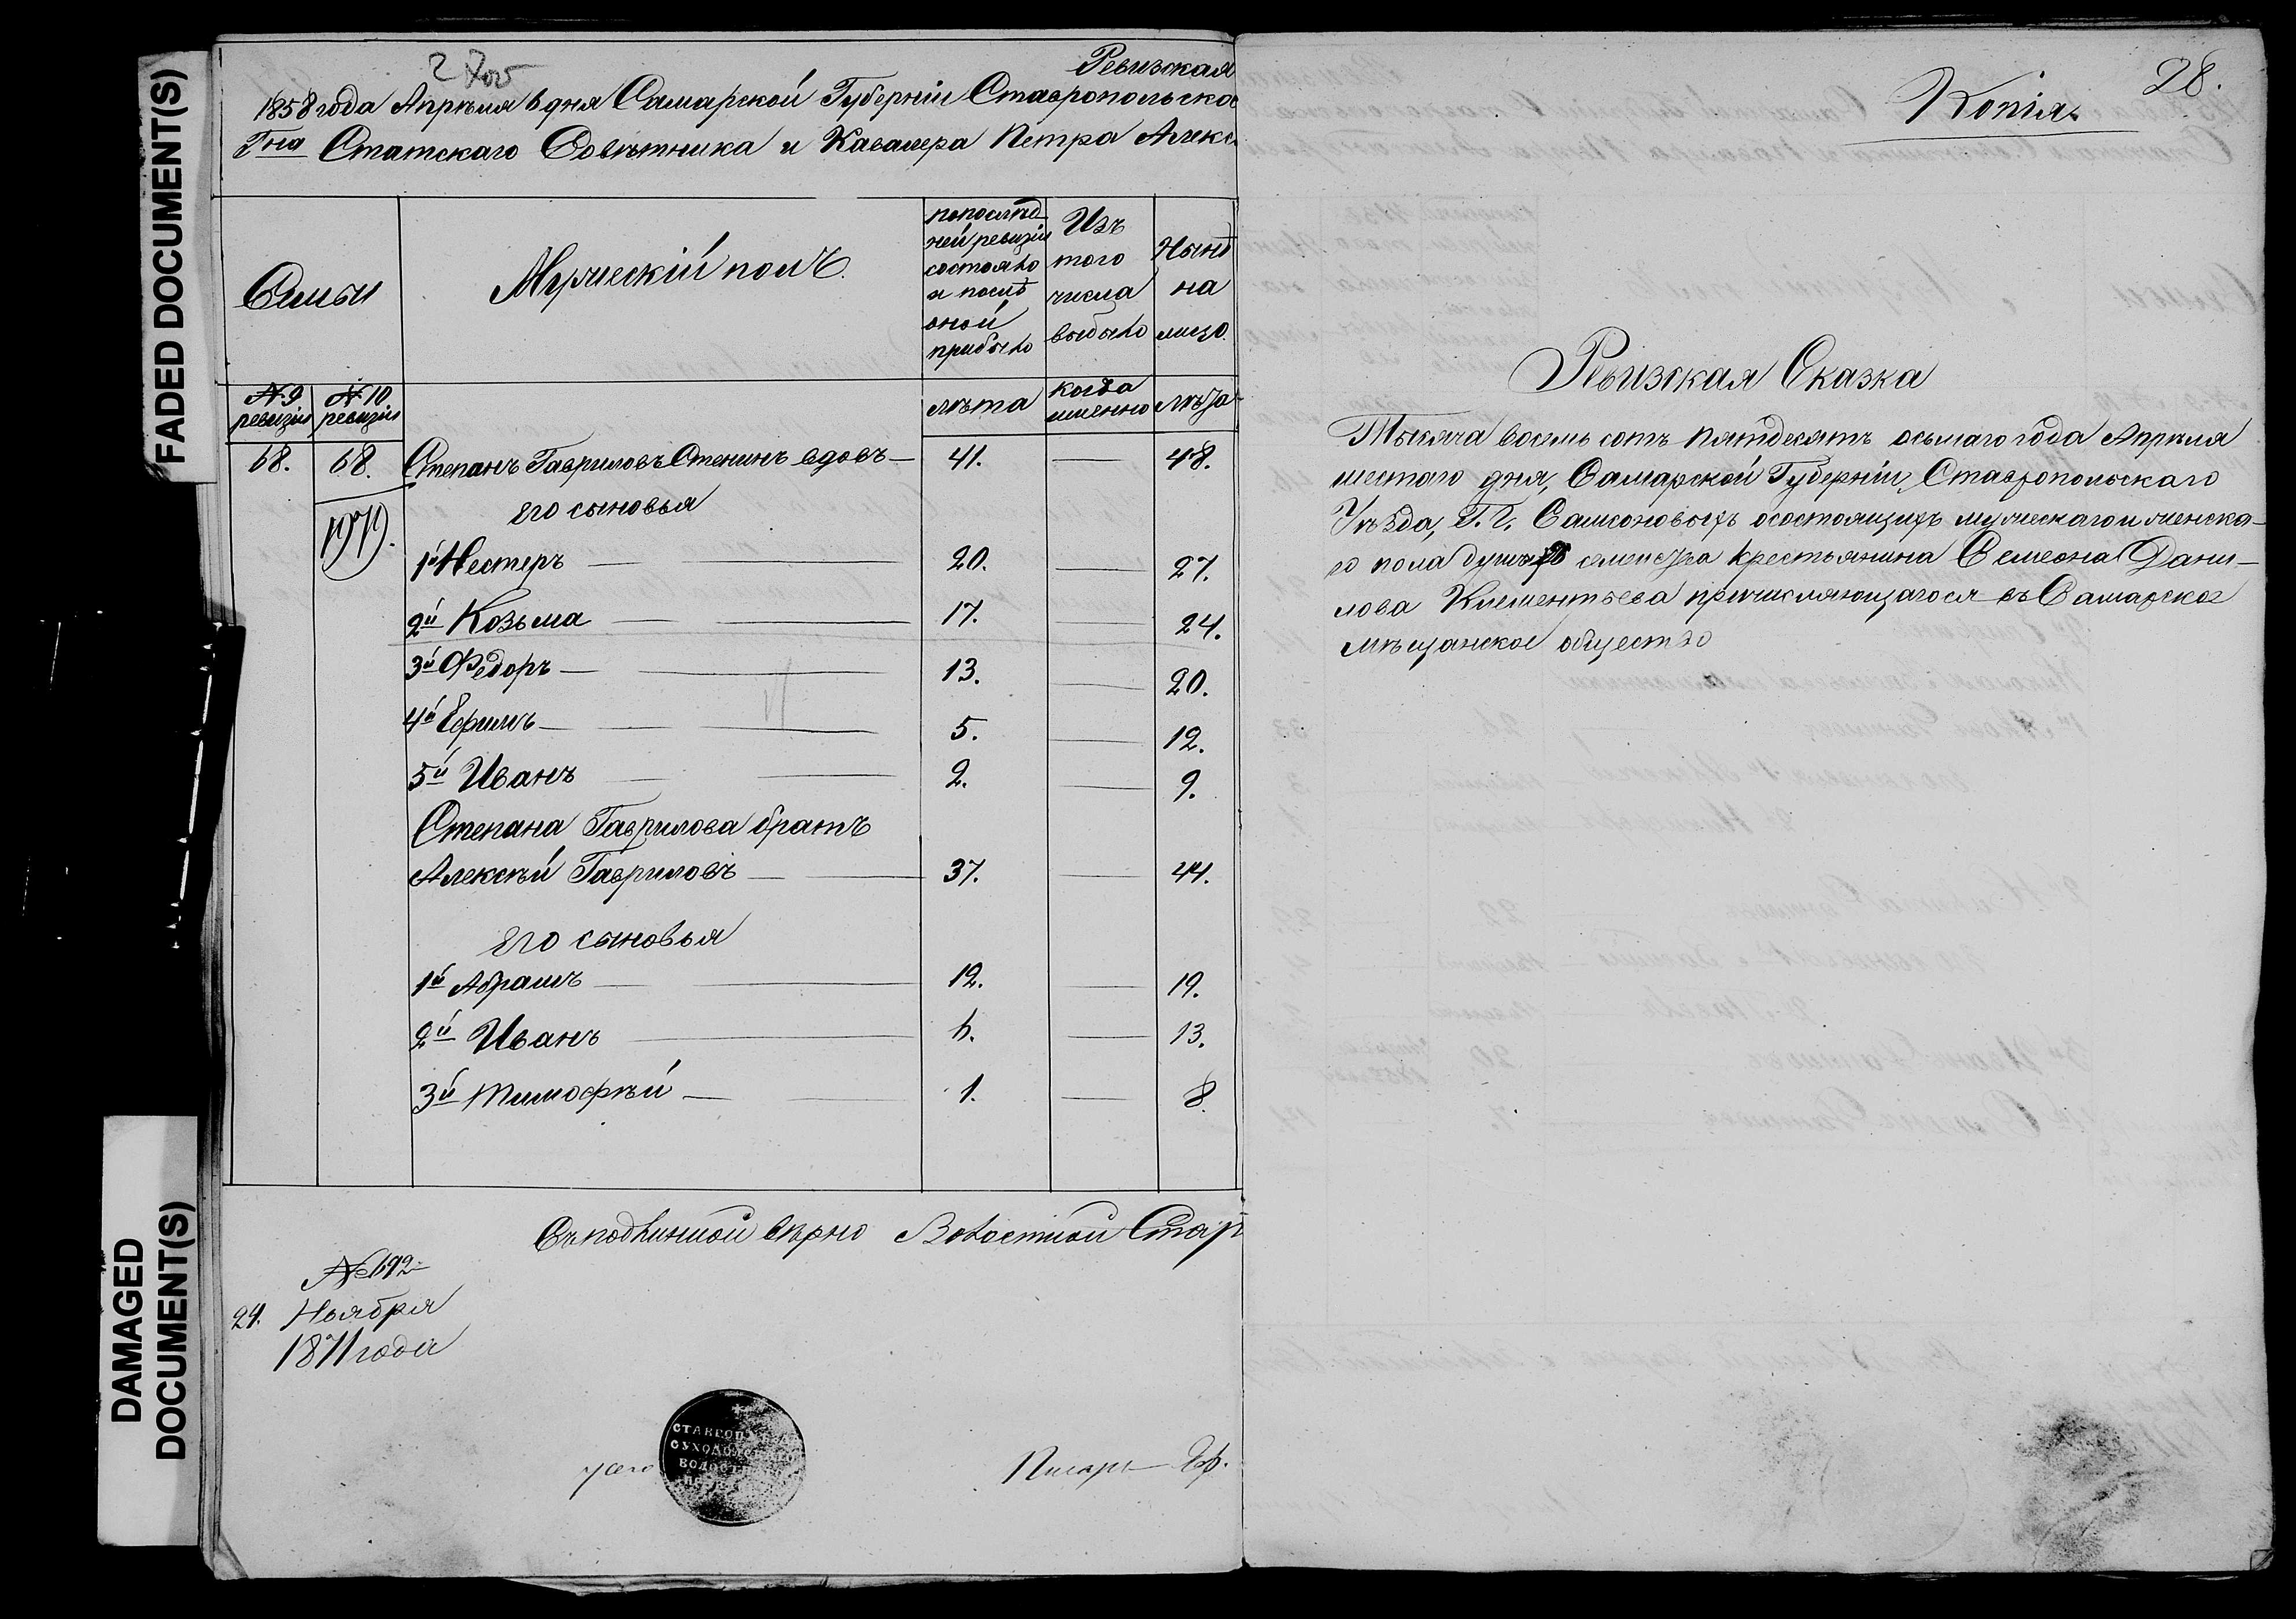 FADED DOCUMENT(S)
DAMAGED
DOCUMENT(S)
Ревизская
1858 года Апрѣля 6 дня Самарской Губерніи Ставропольско
Гна Статскаго Совѣтника и Кавалера Петра Алекс
Семьи
Мужескій полъ.
попослѣд
ней ревизіи
состояло
и послѣ
оной
прибыло
Изъ
того
числа
выбыло
Нынѣ
на
лицо.
№ 9
ревизіи
№ 10
ревизіи
лѣта
когда
именно
лѣта
68. 68. Степанъ Гавриловъ Стенинъ вдовъ — 41. — 48.
его сыновья
1й Нестеръ — 20. — 27.
2й Козьма — 17. — 24.
3й Федоръ — 13. — 20.
4й Ефимъ — 5. — 12.
5й Иванъ — 2. — 9.
Степана Гаврилова братъ
Алексѣй Гавриловъ — 37. — 44.
его сыновья
1й Абрамъ — 12. — 19.
2й Иванъ — 6. — 13.
3й Тимофѣй — 1. — 8.
Съ подлинной вѣрно Волостной Стар
№ 692
24. Ноября
1871 года
Писарь
28.
Копія.
Ревизская Сказка
Тысяча восемь сотъ пятдесятъ осьмаго года Апрѣля
шестаго дня, Самарской Губерніи, Ставропольскаго
Уѣзда, Г.Г. Самсоновыхъ осостоящихъ мужескаго и женска-
го пола душъ семейства крестьянина Семеона Дани-
лова Клементьева причисляющагося въ Самарское
мѣщанское общество